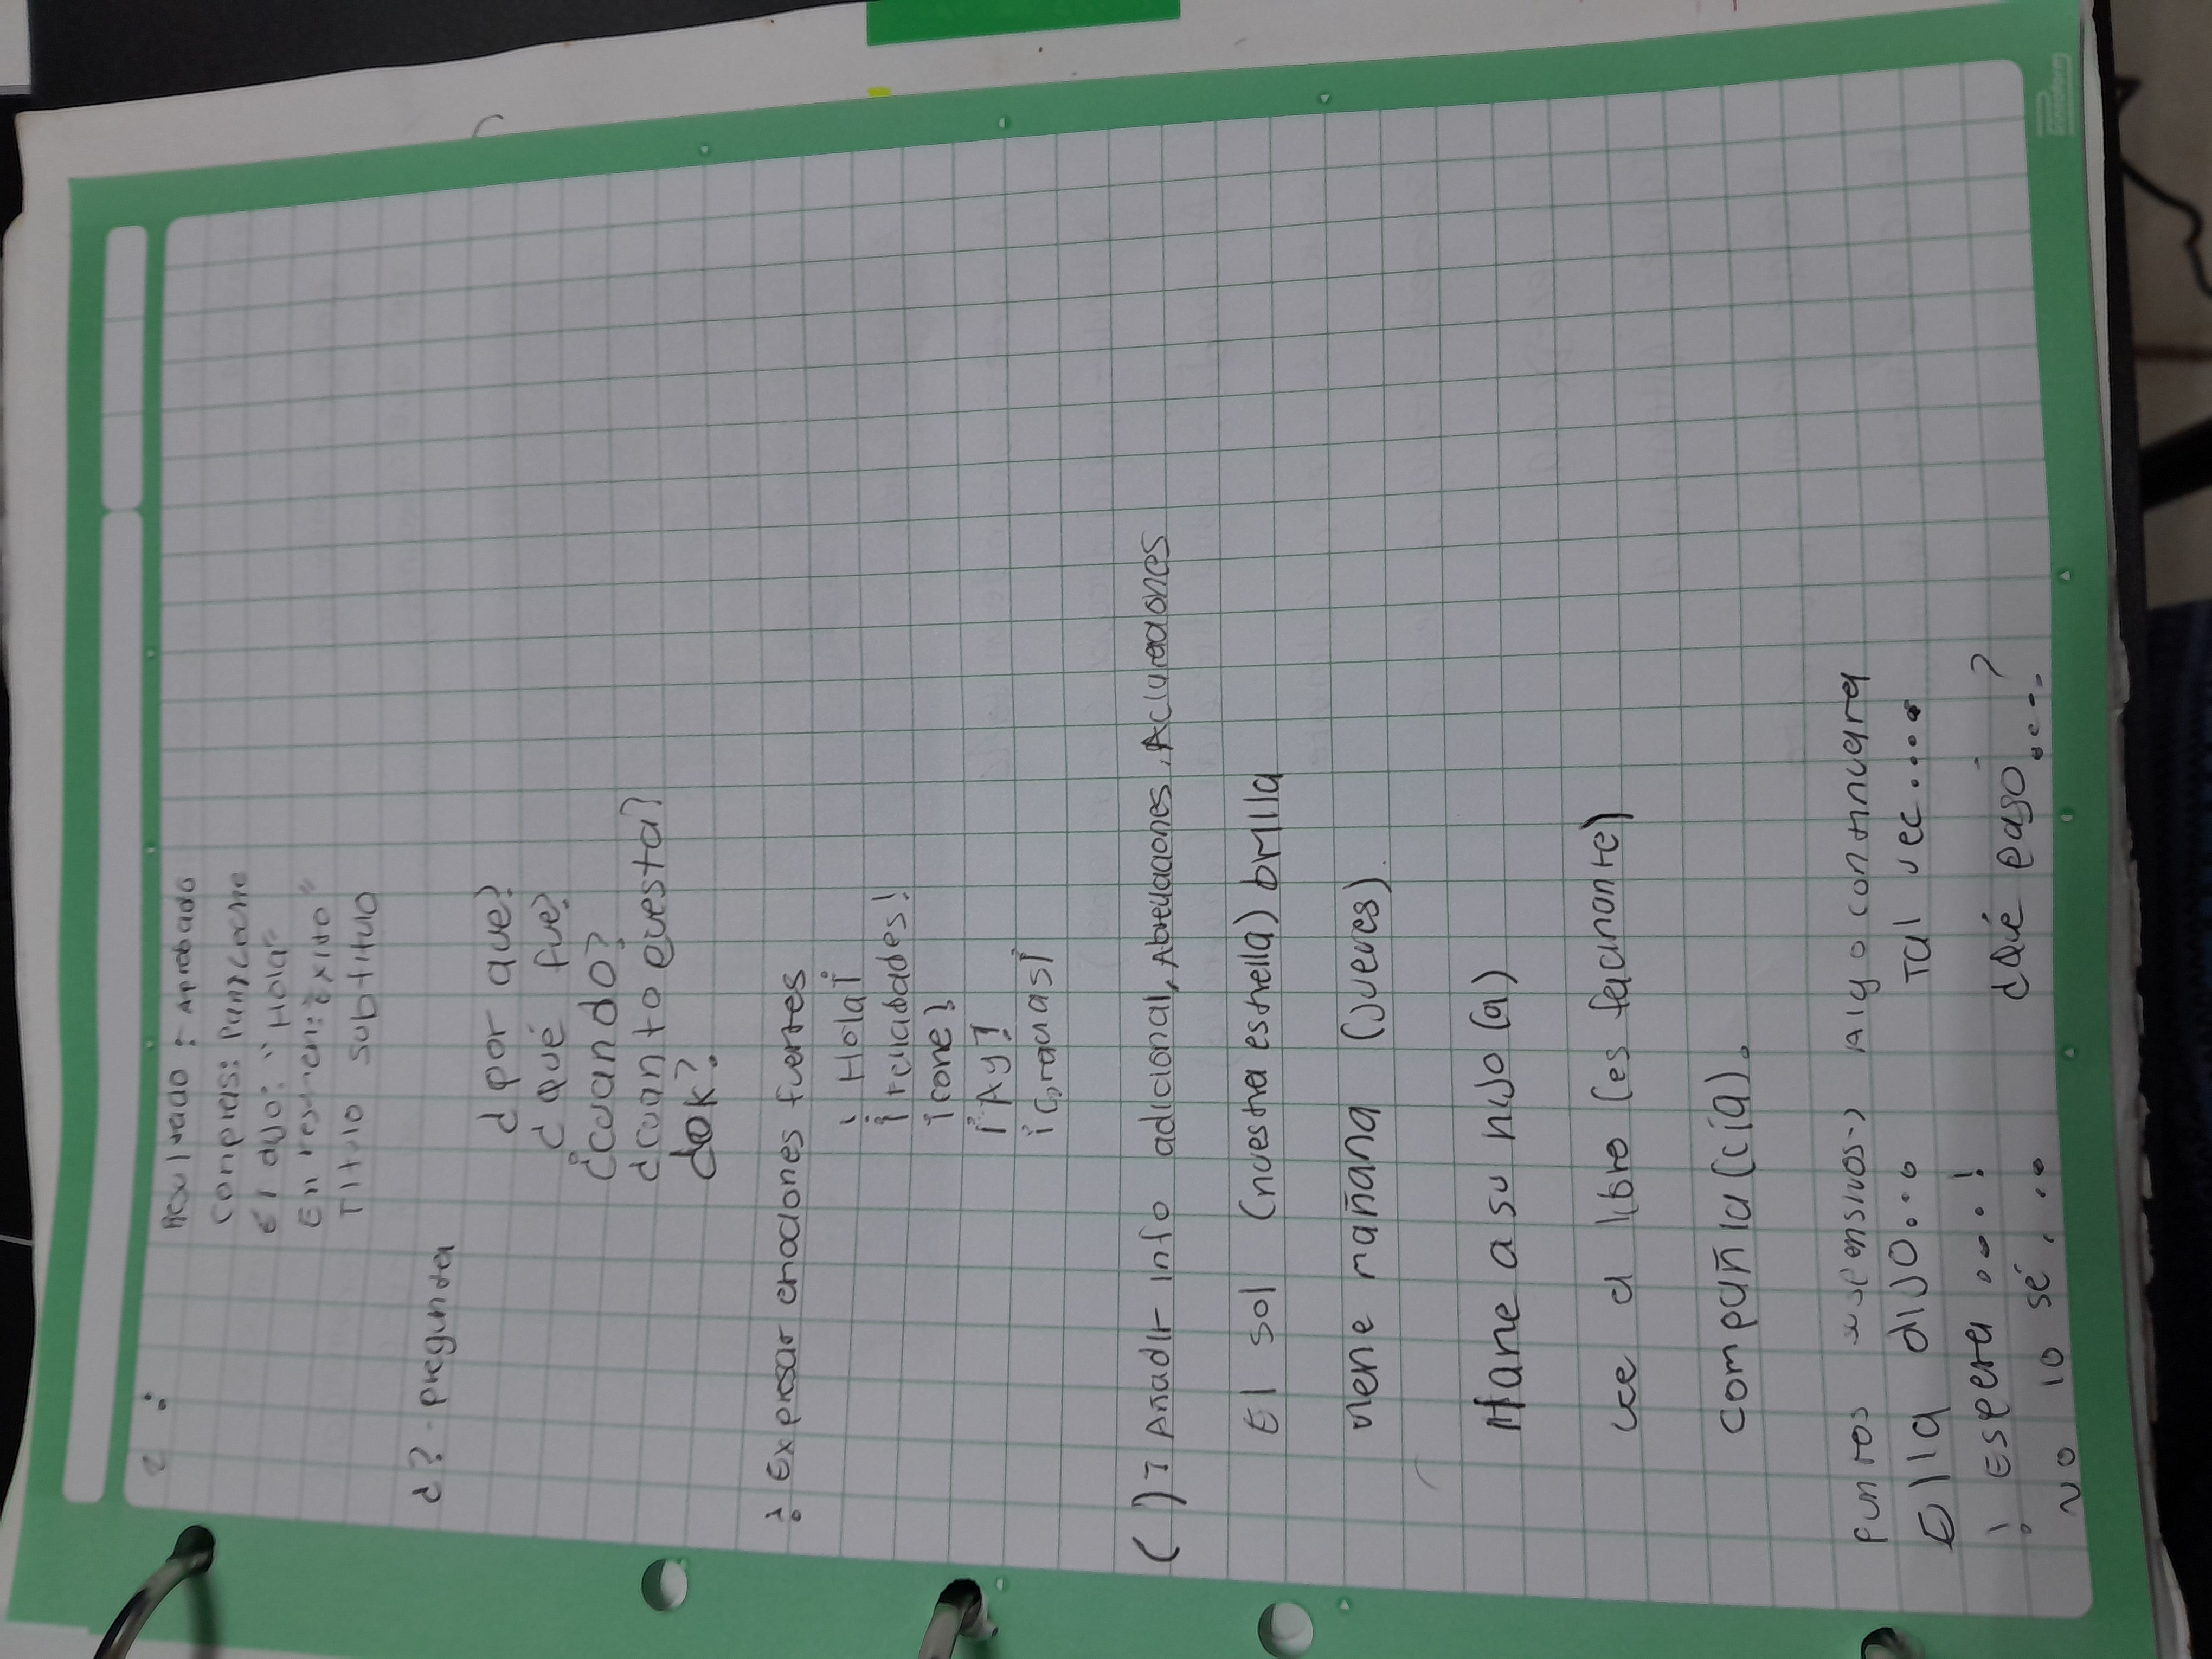 :
Resultado: Aprobado
Compres: Pan, leche
Él dijo: "Hola"
En resumen: Éxito"
Título subtítulo
¿? - pregunta
¿por que?
¿qué fue?
¿cuando?
¿cuanto cuesta?
¿ok?
¡ Expresar emociones fuertes
¡Hola!
¡Felicidades!
¡corre!
¡Ay!
¡Gracias!
( ): Añadir info adicional, Abreviaciones, Aclaraciones
El sol (nuestra estrella) brilla
viene mañana (jueves)
Llame a su hijo (a)
lee el libro (es fascinante)
compañia (cía).
Puntos suspensivos -> Algo continuara
Ella dijo... Tal vec.....
¡Espera ...!
¿Qué paso...?
No lo sé...